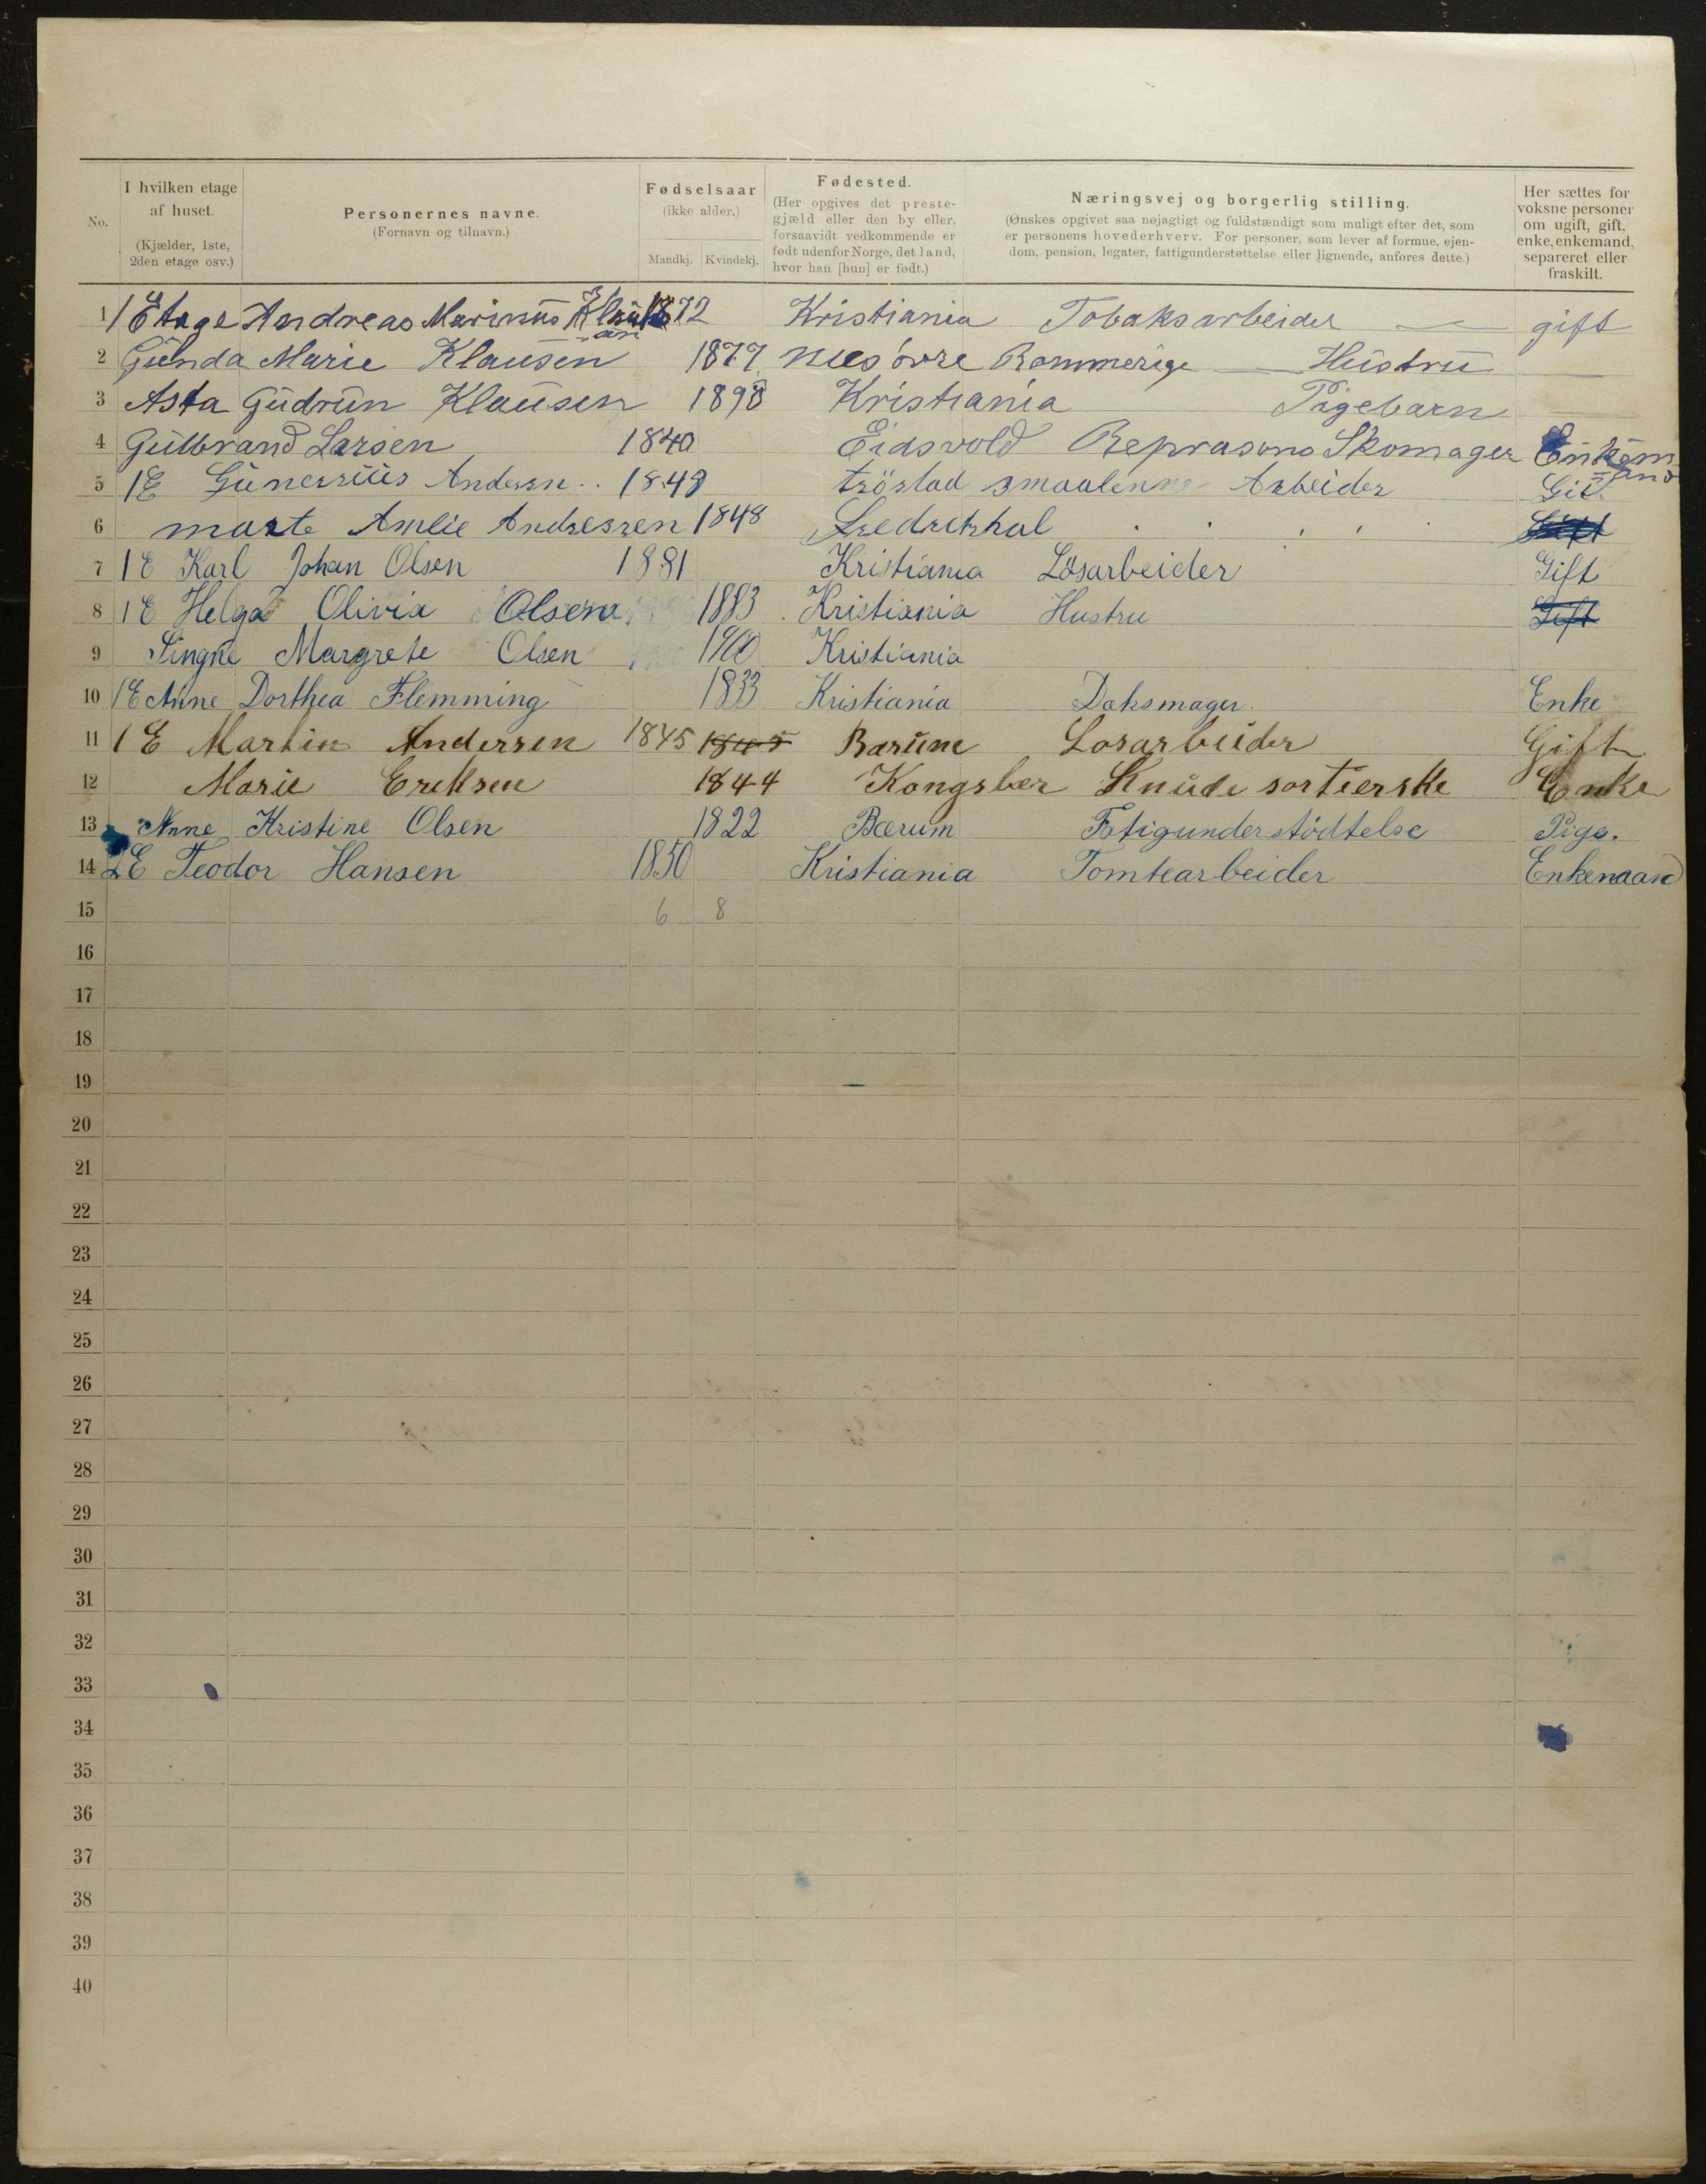 No.
I hvilken etage af huset. (Kjælder, 1ste, 2den etage osv.)
Personernes navne. (Fornavn og tilnavn.)
Fødselsaar (ikke alder.)
Mandkj. Kvindekj.
Fødested. (Her opgives det prestegjæld eller den by eller, forsaavidt vedkommende er født udenfor Norge, det land, hvor han [hun] er født.)
Næringsvej og borgerlig stilling. (Ønskes opgivet saa nøjagtigt og fuldstændigt som muligt efter det, som er personens hovederhverv. For personer, som lever af formue, ejendom, pension, legater, fattigunderstøttelse eller lignende, anføres dette.)
Her sættes for voksne personer om ugift, gift, enke, enkemand, separeret eller fraskilt.
1 1 Etage Andreas Marinus 1872 Kristiania Tobaksarbeider gift
2 Gunda Marie Klausen 1877 Nes övre Rommerige Hustru
3 Asta Gudrun Klausen 1898 Kristiania Pigebarn
4 Gulbrand Larsen 1840 Eidsvold Skomager Enkemand
5 1 E Gunerius Andersn 1848 tröstad smaalenne Arbeider
6 marte Amlie Andressen 1848
7 1 E Karl Johan Olsen 1881 Kristiania Lösarbeider Gift
8 1 E Helga Olivia Olsen 1883 Kristiania Hustru Gift
9 Singne Margrete Olsen 1900 Kristiania
10 1 E Anne Dorthea Flemming 1833 Kristiania Daksmager Enke
11 1 E Martin Andersen 1845 1845 Barüm Losarbeider Gift
12 Marie Eriksen 1844 Kongsber Knude sortierske Enke
13 Anne Kristine Olsen 1822 Bærum Fatigunderstödtelse Pige.
14 2 E Teodor Hansen 1850 Kristiania Tomtearbeider Enkemand
15 6 8
16
17
18
19
20
21
22
23
24
25
26
27
28
29
30
31
32
33
34
35
36
37
38
39
40